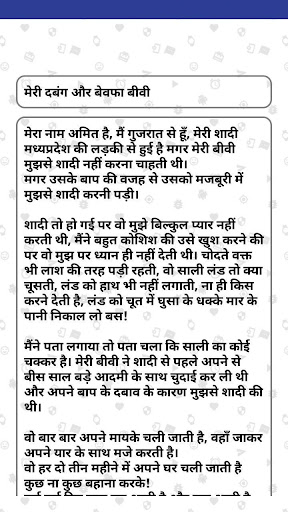 मेरी दबंग और बेवफा बीवी
मेरा नाम अमित है, मैं गुजरात से हूँ, मेरी शादी
मध्यप्रदेश की लड़की से हुई है मगर मेरी बीवी
मुझसे शादी नहीं करना चाहती थी।
मगर उसके बाप की वजह से उसको मजबूरी में
मुझसे शादी करनी पड़ी।
शादी तो हो गई पर वो मुझे बिल्कुल प्यार नहीं
करती थी, मैंने बहुत कोशिश की उसे खुश करने की
पर वो मुझ पर ध्यान ही नहीं देती थी। चोदते वक्त
भी लाश की तरह पड़ी रहती, वो साली लंड तो क्या
चूसती, लंड को हाथ भी नहीं लगाती, ना ही किस
करने देती है, लंड को चूत में घुसा के धक्के मार के
पानी निकाल लो बस!
मैंने पता लगाया तो पता चला कि साली का कोई
चक्कर है। मेरी बीवी ने शादी से पहले अपने से
बीस साल बड़े आदमी के साथ चुदाई कर ली थी
और अपने बाप के दबाव के कारण मुझसे शादी की
थी।
वो बार बार अपने मायके चली जाती है, वहाँ जाकर
अपने यार के साथ मजे करती है।
वो हर दो तीन महीने में अपने घर चली जाती है
कुछ ना कुछ बहाना करके!